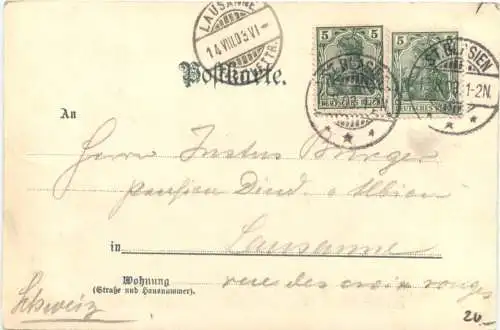 LAUSANNE
14.VIII.03.VI
5 5
DEUTSCHES REICH DEUTSCHES REICH
ST. BLASIEN ST. BLASIEN
1-2N.
Postkarte.
An
Herrn Justus Bürger
pension Dind. Albion
in Lausanne
Wohnung
(Straße und Hausnummer).
rue des croix rouges
Schweiz
20.-